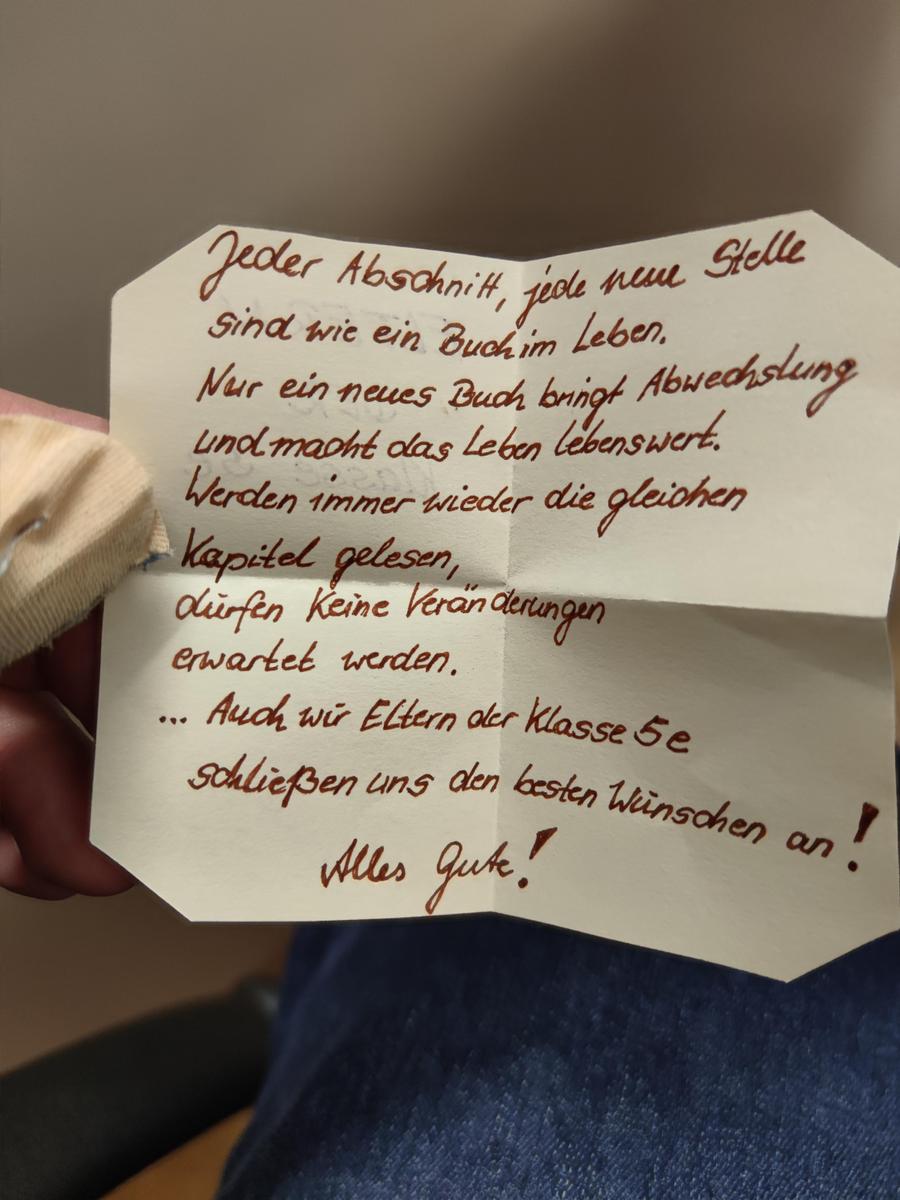 Jeder Abschnitt, jede neue Stelle
sind wie ein Buch im Leben.
Nur ein neues Buch bringt Abwechslung
und macht das Leben lebenswert.
Werden immer wieder die gleichen
Kapitel gelesen,
dürfen keine Veränderungen
erwartet werden.
... Auch wir Eltern der Klasse 5e
schließen uns den besten Wünschen an!
Alles Gute!